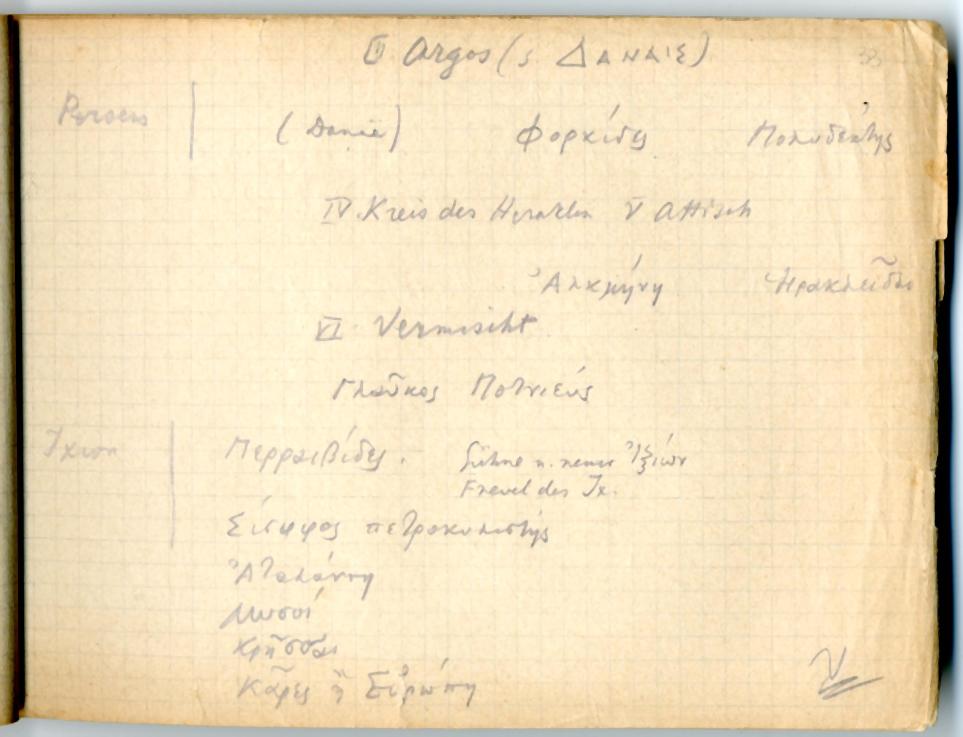 II Argos (s ΔΑΝΑΙΣ) 33
Perseus (Danae) Φορκίδες Πολυδέκτης
IV. Kreis des Herakles V Attisch
Ἀλκμήνη Ἡρακλεῖδαι
VI Vermischt
Γλαῦκος Ποτνιεύς
Ixion Περραιβίδες. Sühne u. neuer Ἰξίων
Frevel des Ix.
Σίσυφος πετροκυλιστής
Ἀταλάντη
Μυσοί
Κρῆσσαι
Κᾶρες ἢ Εὐρώπη